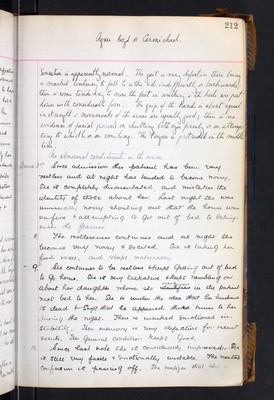 212
Agnes Boyd or Carmichael.
Sensation is apparently normal. The gait is very defective there being
a marked tendency to fall to either side indifferently or backwards,
there is some tendency to cross the feet in walking & the heels are put
down with considerable force. The grip of the hands is about equal
in strength & movements of the arms are equally good; there is no
evidence of facial paresis or drooping
tony of whistle or on smiling. The tongue is protruded in the middle
line.
No abnormal constituent in the urine.
Since admission this patient has been very
restless and at night has tended to become noisy.
She is completely disorientated, and mistakes the
identity of those about her. Last night she was
unusually noisy shouting out that the house was
on fire & attempting to get out of bed to
the flames.
8. The restlessness continues and at night she
becomes very noisy & excited. She is taking her
food well, and sleeps naturally.
9. She continues to be restless keeps getting out of bed
to go home. She is very talkative keeps rambling on
about her daughter whom she identifies in the patient
next bed to her. She is under the idea that her husband
is dead & says that he appeared dead to her
during the night. There is marked emotional in-
stability. Her memory is very defective for recent
events. Her general condition keeps good.
Since last note she is considerably improved. She
is still very facile & emotionally unstable. The mental
confusion is passing off. She realizes that she